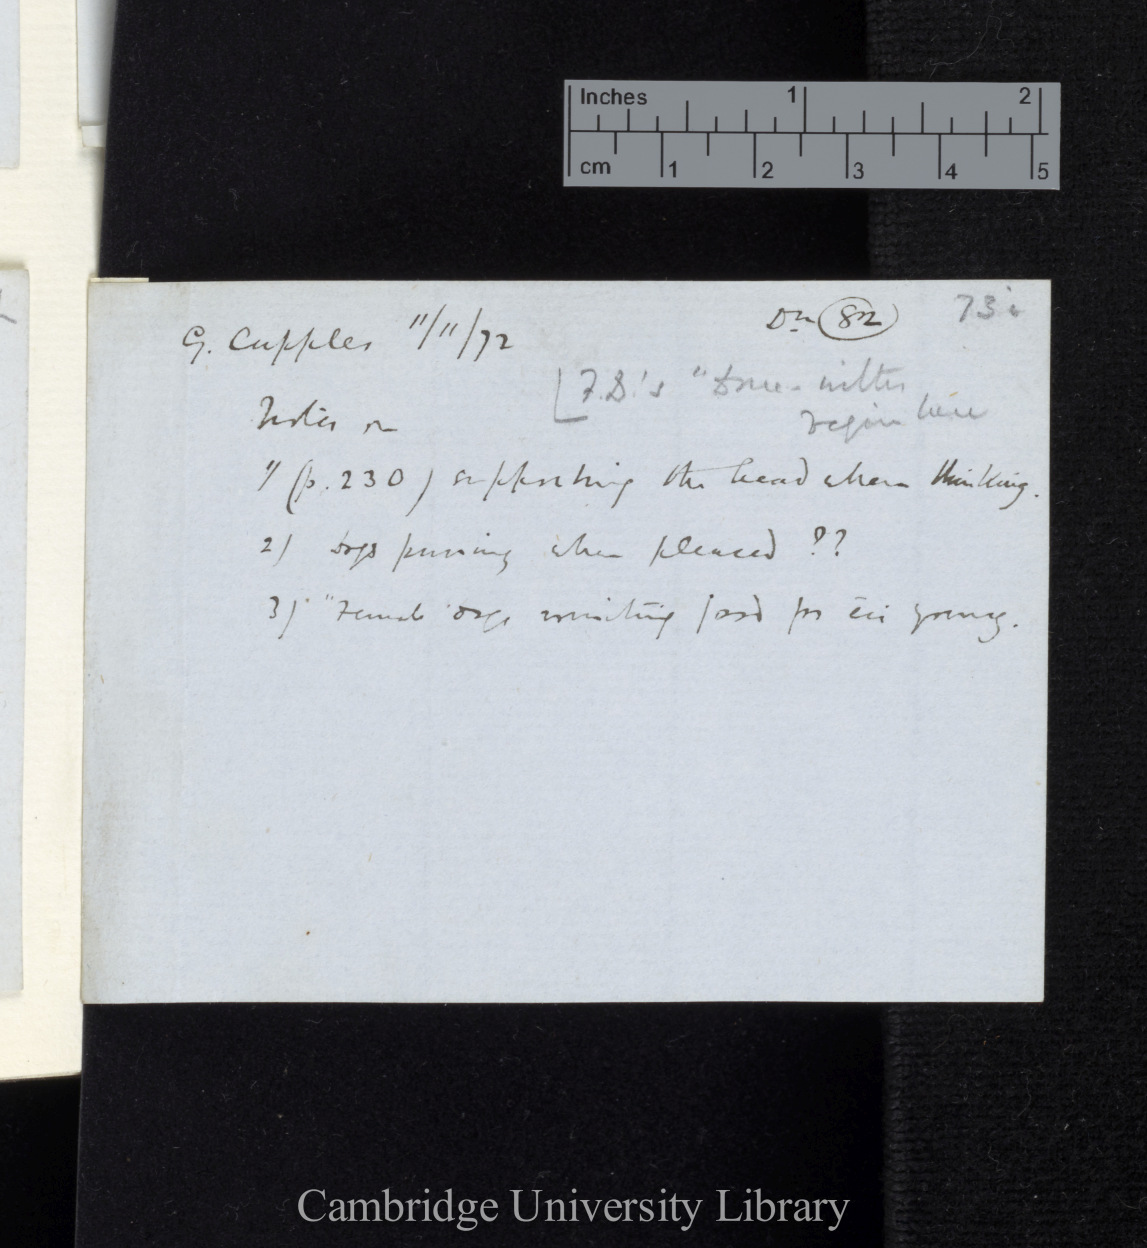 Inches 1 2
cm 1 2 3 4 5
G. Cupples 11/11/72
Dn 82
73i
[F.D.'s "Done - with
begin here
Notes on
1) (p. 230) supporting the head when thinking.
2) Dogs purring when pleased ??
3) "Female dogs vomiting food for their young.
Cambridge University Library